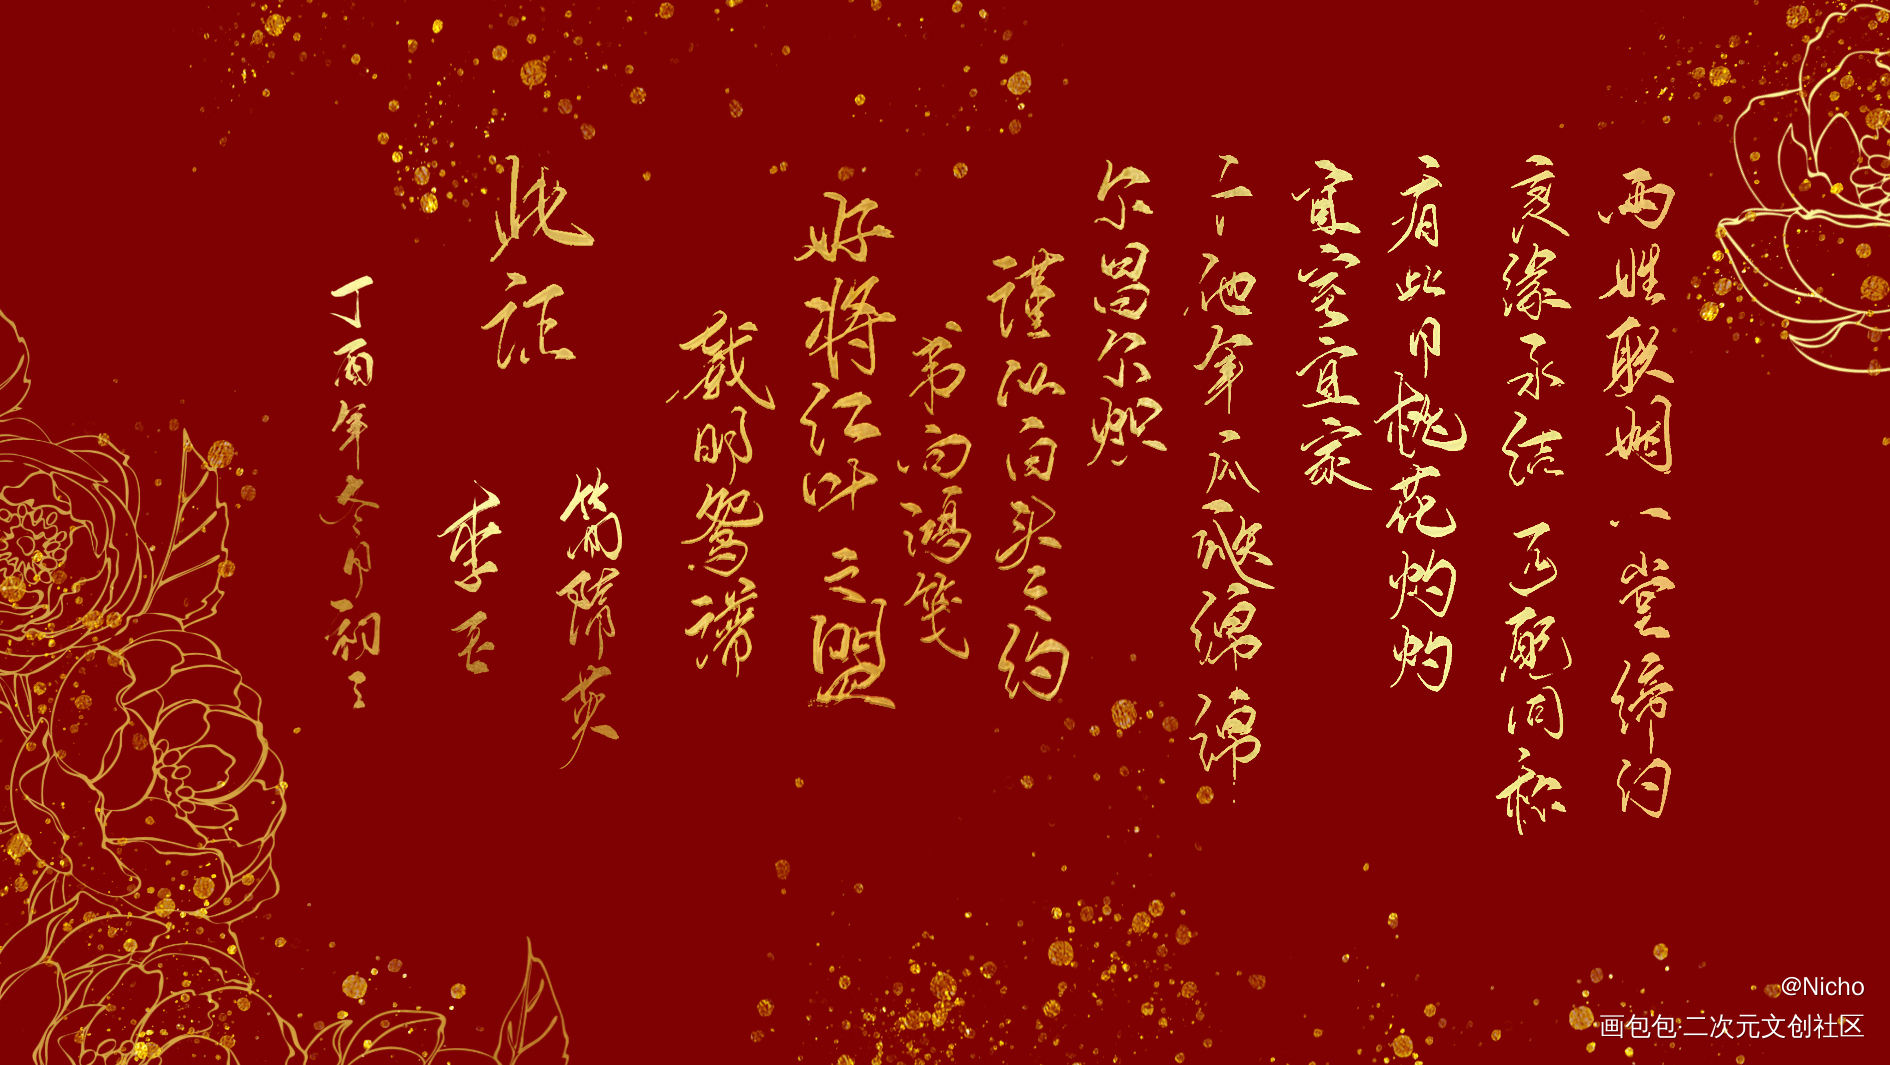 两姓联姻 一堂缔约
良缘永结 匹配同称
看此日桃花灼灼
宜室宜家
卜他年瓜瓞绵绵
尔昌尔炽
谨以白头之约
书向鸿笺
好将红叶之盟
载明鸳谱
此证
简隋英
李玉
丁酉年冬月初三
@Nicho
画包包 二次元文创社区